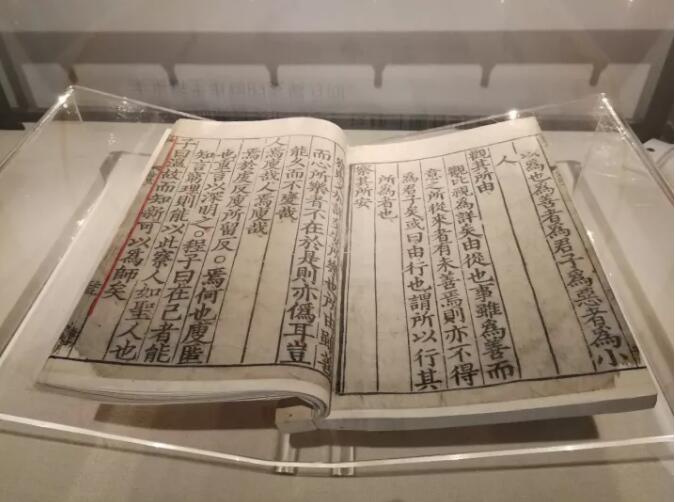 以為也為善者為君子為惡者為小
人
觀其所由
觀比視為詳矣由從也事雖為善而
意之所從來者有未善焉則亦不得
為君子矣或曰由行也謂所以行其
所為者也
察其所安
所樂也所由雖善
而心所樂者不在於是則亦偽耳豈
能久而不變哉
人焉廋哉人焉廋哉
焉於虔反廋所留反○焉何也廋匿
也重言以深明之○程子曰在己者能
知言窮理則能以此察人如聖人也
子曰溫故而知新可以為師矣